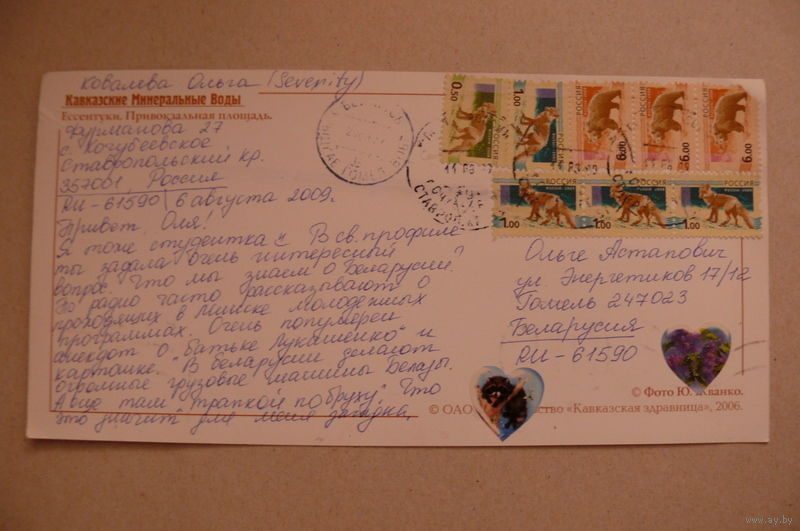 Ковалева Ольга (Severity)
Кавказские Минеральные Воды
Ессентуки. Привокзальная площадь.
Фурманова 27
с. Кочубеевское
Ставропольский кр.
357001, Россия
RU-61590 | 6 августа 2009г.
Привет, Оля!
Я тоже студентка :). В св. профиле
ты задала очень интересный
вопрос. Что мы знаем о Беларусии?
По радио часто рассказывают о
проходящих в Минске молодежных
программах. Очень популярен
анекдот о "батьке Лукашенко" и
картошке. "В Беларусии делают
огромные грузовые машины Белазы.
А вид там "тряпкой по бруху". Что
это значит для меня загадка.
0.50
1.00
РОССИЯ
РОССИЯ
РОССИЯ
6.00
6.00
6.00
РОССИЯ
РОССИЯ
РОССИЯ
1.00
1.00
1.00
Ольге Астапович
ул. Энергетиков 17/12
Гомель 247023
Беларусия
RU-61590
© Фото Ю.
© ОАО «Кавказская здравница», 2006.
www.ay.by